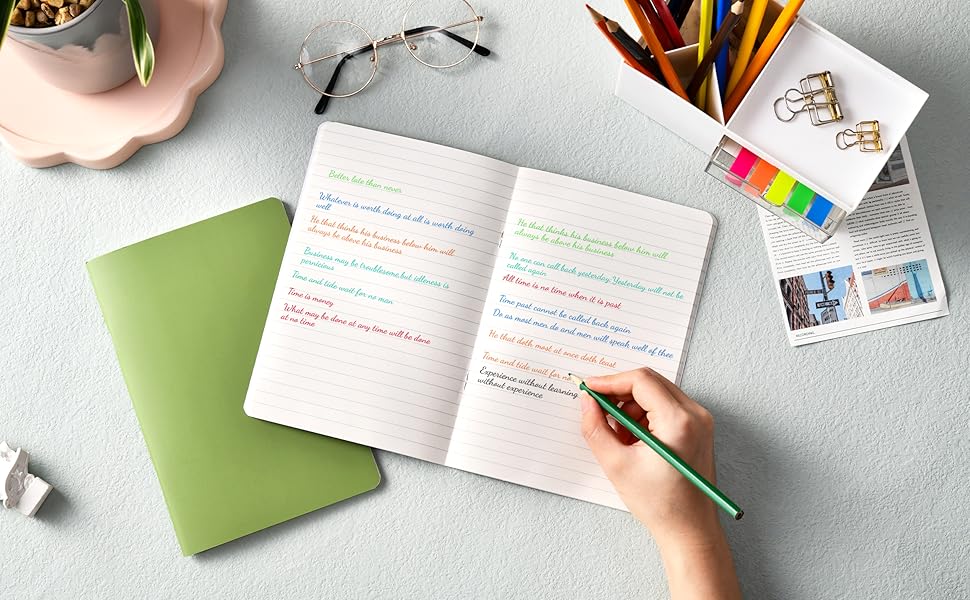 Better late than never
Whatever is worth doing at all is worth doing
well
He that thinks his business below him will
always be above his business
Business may be troublesome,but idleness is
pernicious
Time and tide wait for no man
Time is money
What may be done at any time will be done
at no time
He that thinks his business below him will
always be above his business
No one can call back yesterday;Yesterday will not be
called again
All time is no time when it is past
Time past cannot be called back again
Do as most men do and men will speak well of thee
He that doth most at once doth least
Time and tide wait for no
Experience without learning
without experience